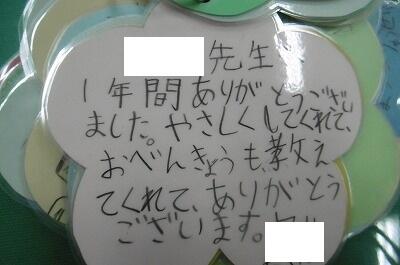 先生
1年間ありがとうござい
ました。やさしくしてくれて、
おべんきょうも、教え
てくれて、ありがとう
ございます。